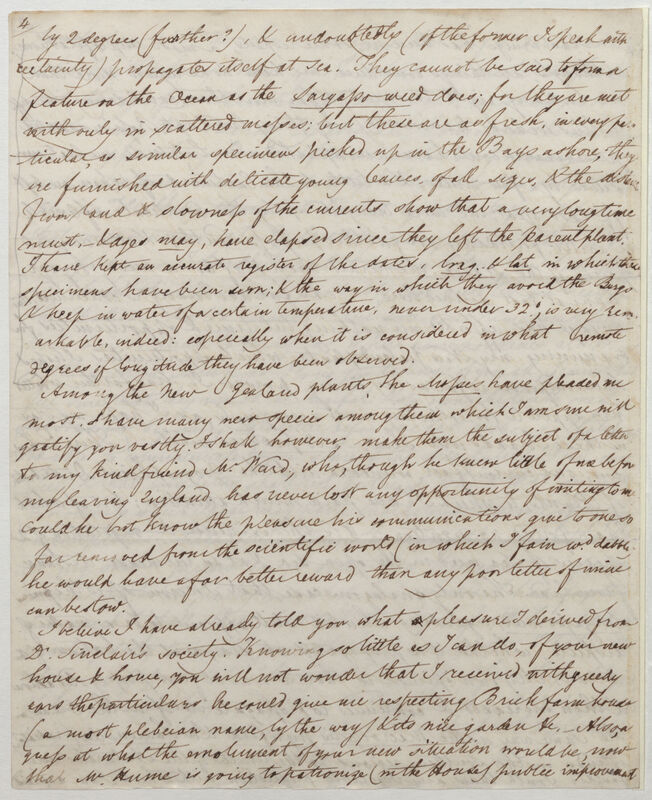 4
by 2 degrees (further?), & undoubtedly (of the former I speak with
certainty) propagates itself at sea. They cannot be said to form a
feature on the Ocean as the Sargasso weed does; for they are met
with only in scattered masses; but these are as fresh, in every par-
ticular, as similar specimens picked up in the Bays ashore, they
are furnished with delicate young leaves of all sizes, & the distance
from land & slowness of the currents show that a very long time
must, & ages may, have elapsed since they left the parent plant.
I have kept an accurate register of the dates, long. & lat in which these
specimens have been seen; & the way in which they avoid the Bergs
& keep in water of a certain temperature, never under 32°, is very rem-
arkable, indeed: especially when it is considered in what remote
degrees of longitude they have been observed.
Among the New Zealand plants the Mosses have pleased me
most. I have many new species among them which I am sure will
gratify you vastly. I shall however make them the subject of a letter
to my kind friend Mr Ward, who, though he knew little of me before
my leaving England. has never lost any opportunity of writing to me
Could he but know the pleasure his communications give to one so
far removed from the scientific world (in which I fain wd dabble
he would have a far better reward than any poor letter of mine
can bestow.
I believe I have already told you what pleasure I derived from
Dr Sinclair's society. Knowing so little as I can do, of your new
house & home, you will not wonder that I received with greedy
ears the particulars he could give me respecting Brick farm house
(a most plebeian name, by the way) & its nice garden &c. Also a
guess at what the emolument of your new situation would be, now
that Mr Hume is going to patronize (in the House) public improvement